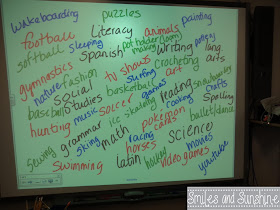 wakeboarding puzzles painting
football Literacy animals
softball sleeping Spanish pot holder (loom) making writing poetry
gymnastics tv shows crocheting lang. arts
nature fashion surfing art
social studies basketball games reading snowboarding
baseball music soccer ice skating cooking crafts
hunting grammar math pokemon cards Spelling
sewing skiing racing science ballet/dance
swimming horses movies
latin hockey video games youtube
Smiles and Sunshine